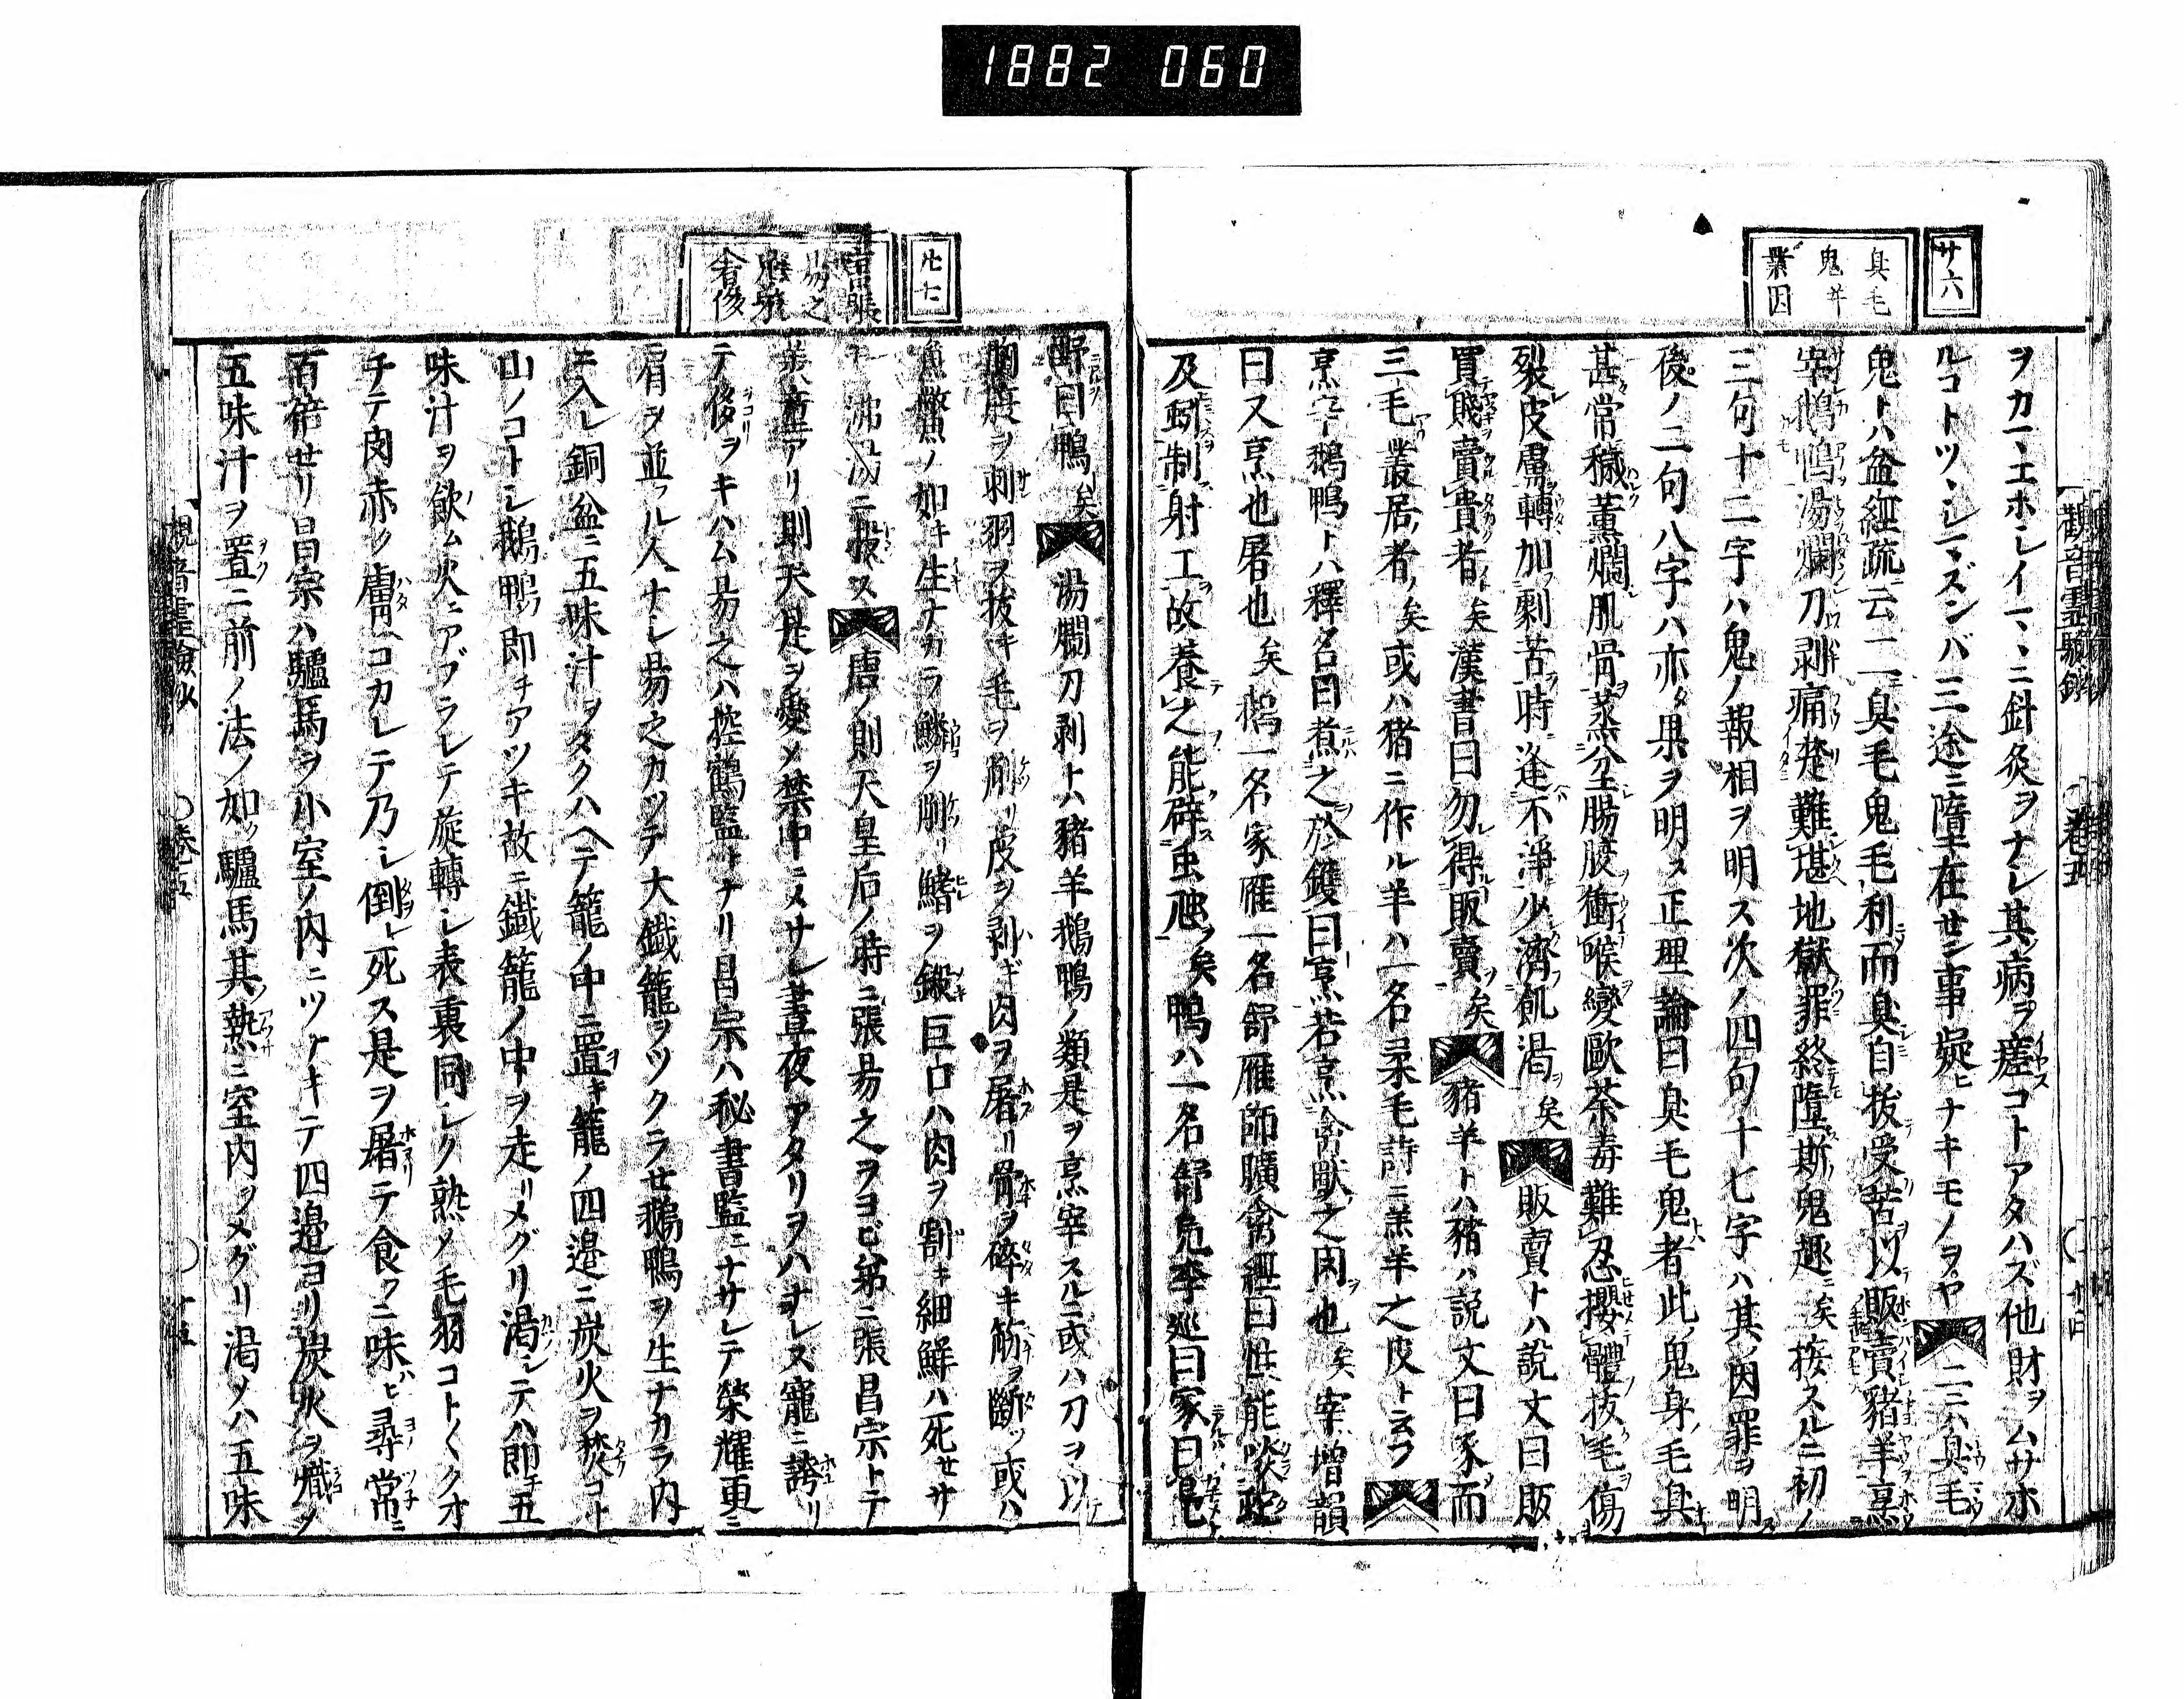 1882 060
廿六
臭毛
鬼并
業因
ヲカヽエホシイマヽニ針灸ヲナシ其病ヲ瘥コトアタハズ他財ヲムサホ
ルコトツヽシマズンバ三途ニ墮在せン事疑ヒナキモノヲヤ二三ハ臭毛
鬼トハ盆經疏云二臭毛鬼毛利而臭自拔受苦以販賣豬羊烹
宰鵝鴨湯爛刀剥痛楚難堪地獄罪終墮斯鬼趣矣按スルニ初ノ
三句十二字ハ鬼ノ報相ヲ明ス次ノ四句十七字ハ其因罪ヲ明ス
後ノ二句八字ハ亦タ果ヲ明ス正理論曰臭毛鬼者此鬼身毛臭
甚常穢薰爛肌骨蒸坌腸腹衝喉變歐荼毒難忍攖體拔毛傷
裂皮膚轉加劇苦時逢不淨少濟飢渇矣販賣トハ說文曰販
買賤賣貴者矣漢書曰勿得販賣矣豬羊トハ豬ハ説文曰豕而
三毛叢居者矣或ハ猪ニ作ル羊ハ一名柔毛詩ニ羔羊之皮ト云フ
烹宰鵝鴨トハ釋名曰煮之於鑊曰烹若烹禽獸之肉也矣宰增韻
曰又烹也屠也矣鵝一名家雁一名舒雁師曠禽經曰鵝能啖蛇
及蚓制射工故養之能辟虫虺矣鴨ハ一名舒鳧李巡曰家曰鳧
觀音靈驗鈔 卷五 十四
廿七
昌張
易之
鬼驗
奢侈
野曰鴨矣湯爛刀剥トハ豬羊鵝鴨ノ類是ヲ烹宰スルニ或ハ刀ヲ以テ
胸腹ヲ刺羽ヲ拔キ毛ヲ削リ皮ヲ剥ギ肉ヲ屠リ骨ヲ碎キ筋ヲ斷ツ或ハ
魚鱉ノ如キ生ナカラ鱗ヲ削リ鰭ヲ鍛キ巨口ハ肉ヲ割キ細鮮ハ死せサ
ルニ沸湯ニ投ス唐ノ則天皇后ノ時ニ張易之ヲヨビ弟ニ張昌宗トテ
美童アリ則天是ヲ愛メ禁中ニメサレ晝夜アタリヲハナレス寵ニ誇リ
テ侈ヲキハム易之ハ控鶴監トナリ昌宗ハ秘書監ニナサレテ榮耀更ニ
肩ヲ並フル人ナシ易之カツテ大鐵籠ヲツクラせ鵝鴨ヲ生ナカラ内
ニ入レ銅盆ニ五味汁ヲタクハヘテ籠ノ中ニ置キ籠ノ四邊ニ炭火ヲ焚コト
山ノコトシ鵝鴨即チアツキ故ニ鐵籠ノ中ヲ走リメグリ渇シテハ即チ五
味汁ヲ飲ム火ニアブラレテ旋轉シ表裏同シク熟メ毛羽コト〱クオ
チテ肉赤ク膚コカレテ乃シ倒レ死ス是ヲ屠テ食フニ味ヒ尋常ニ
百倍せリ昌宗ハ驢馬ヲ小室ノ内ニツナキテ四邊ヨリ炭火ヲ熾メ
五味汁ヲ置ニ前ノ法ノ如ク驢馬其熱ニ室内ヲメグリ渇メハ五味
觀音靈驗鈔 卷五 十五